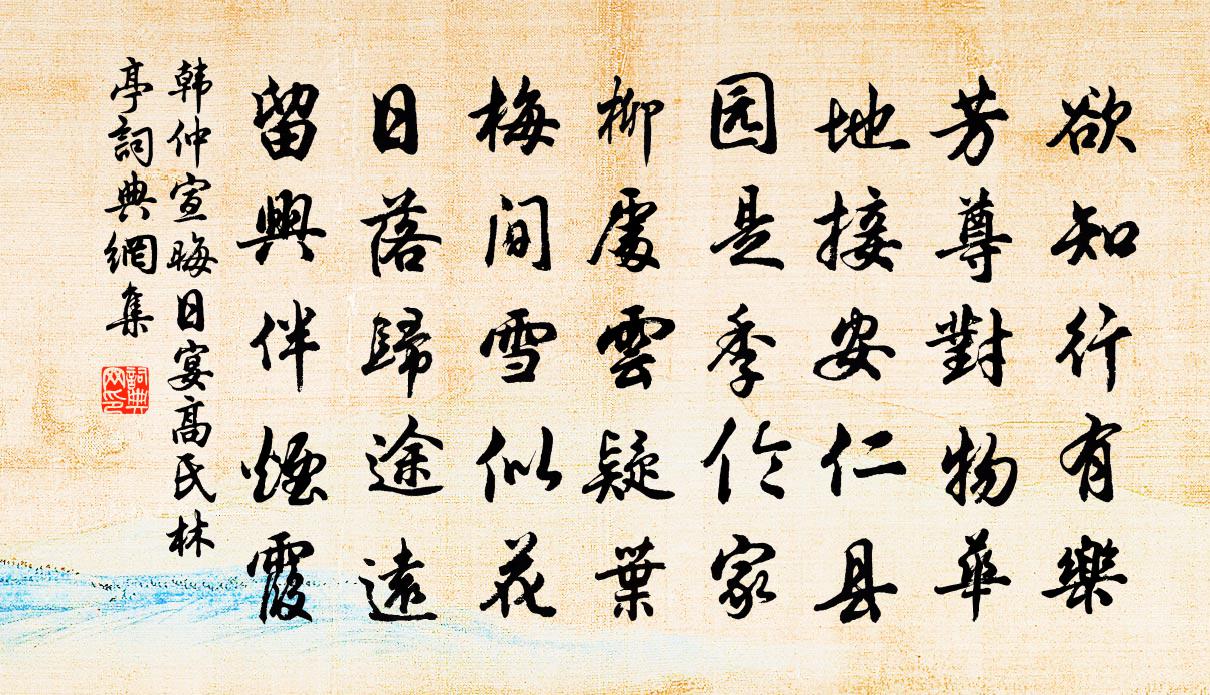 欲知行有樂
芳尊對物華
地接安仁县
园是季伦家
柳處雲疑葉
梅间雪似花
日落歸途遠
留興伴煙霞
韩仲宣晦日宴高氏林
亭詞典網集
詞典网印